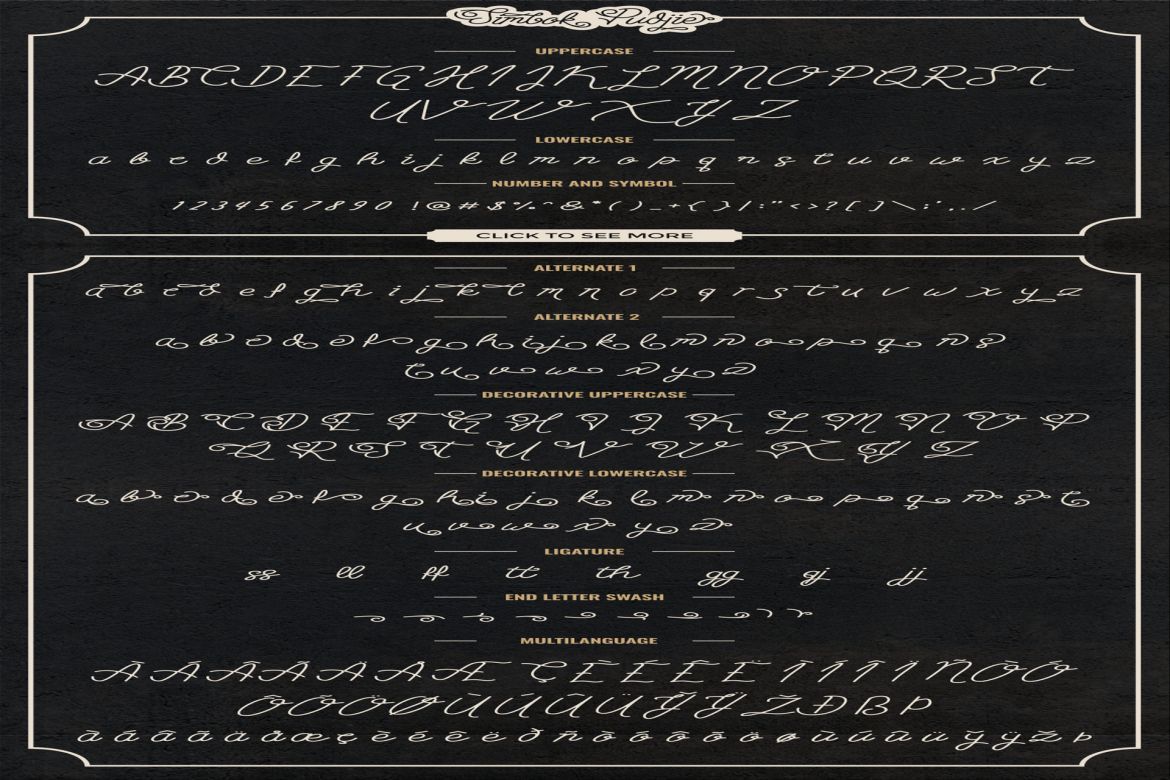 Simbok Pudjie
UPPERCASE
A B C D E F G H I J K L M N O P Q R S T
U V W X Y Z
LOWERCASE
a b c d e f g h i j k l m n o p q r s t u v w x y z
NUMBER AND SYMBOL
1 2 3 4 5 6 7 8 9 0 ! @ # $ % ^ & * ( ) _ + { } | : " < > ? [ ] \ ; ' , . /
CLICK TO SEE MORE
ALTERNATE 1
a b c d e f g h i j k l m n o p q r s t u v w x y z
ALTERNATE 2
a b c d e f g h i j k l m n o p q r s
t u v w x y z
DECORATIVE UPPERCASE
A B C D E F G H I J K L M N O P
Q R S T U V W X Y Z
DECORATIVE LOWERCASE
a b c d e f g h i j k l m n o p q r s t
u v w x y z
LIGATURE
ss ll ff tt th gg gj jj
END LETTER SWASH
MULTILANGUAGE